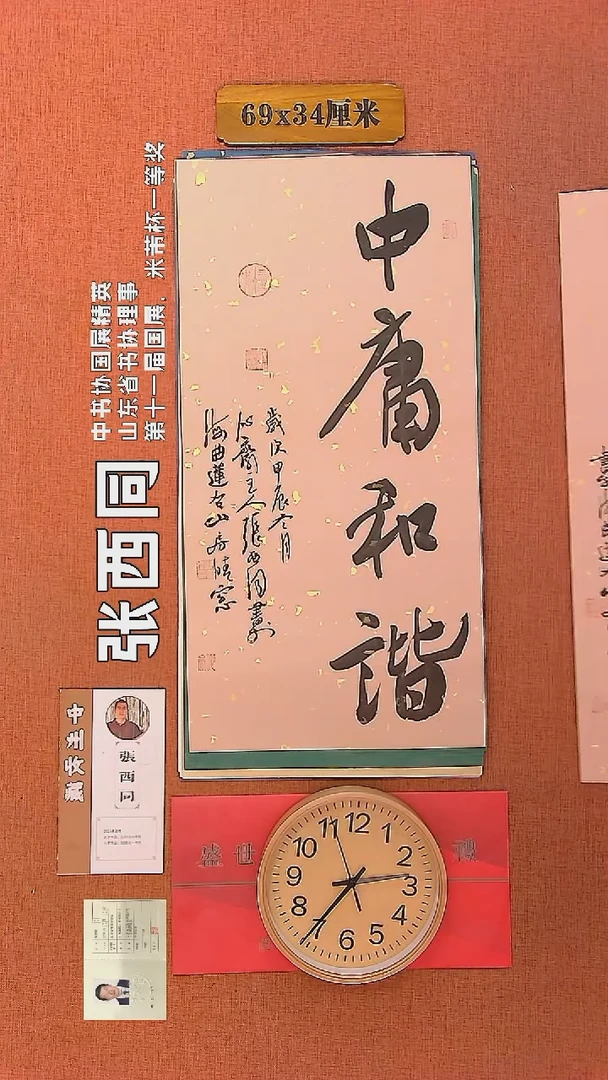 69x34厘米
中书协国展精英
山东省书协理事
第十一届国展、米芾杯一等奖
张西同
中庸和諧
歲次甲辰冬月
主人張西同書於
海曲蓮台山房晴窓
張西同
盛世
12
1
2
3
4
5
6
8
9
10
11